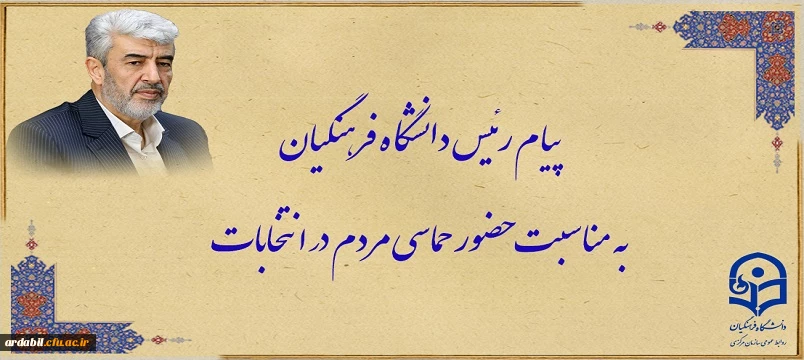 پیام رئیس دانشگاه فرهنگیان
به مناسبت حضور حماسی مردم در انتخابات
دانشگاه فرهنگیان
روابط عمومی سازمان مرکزی
ardabil.cfu.ac.ir